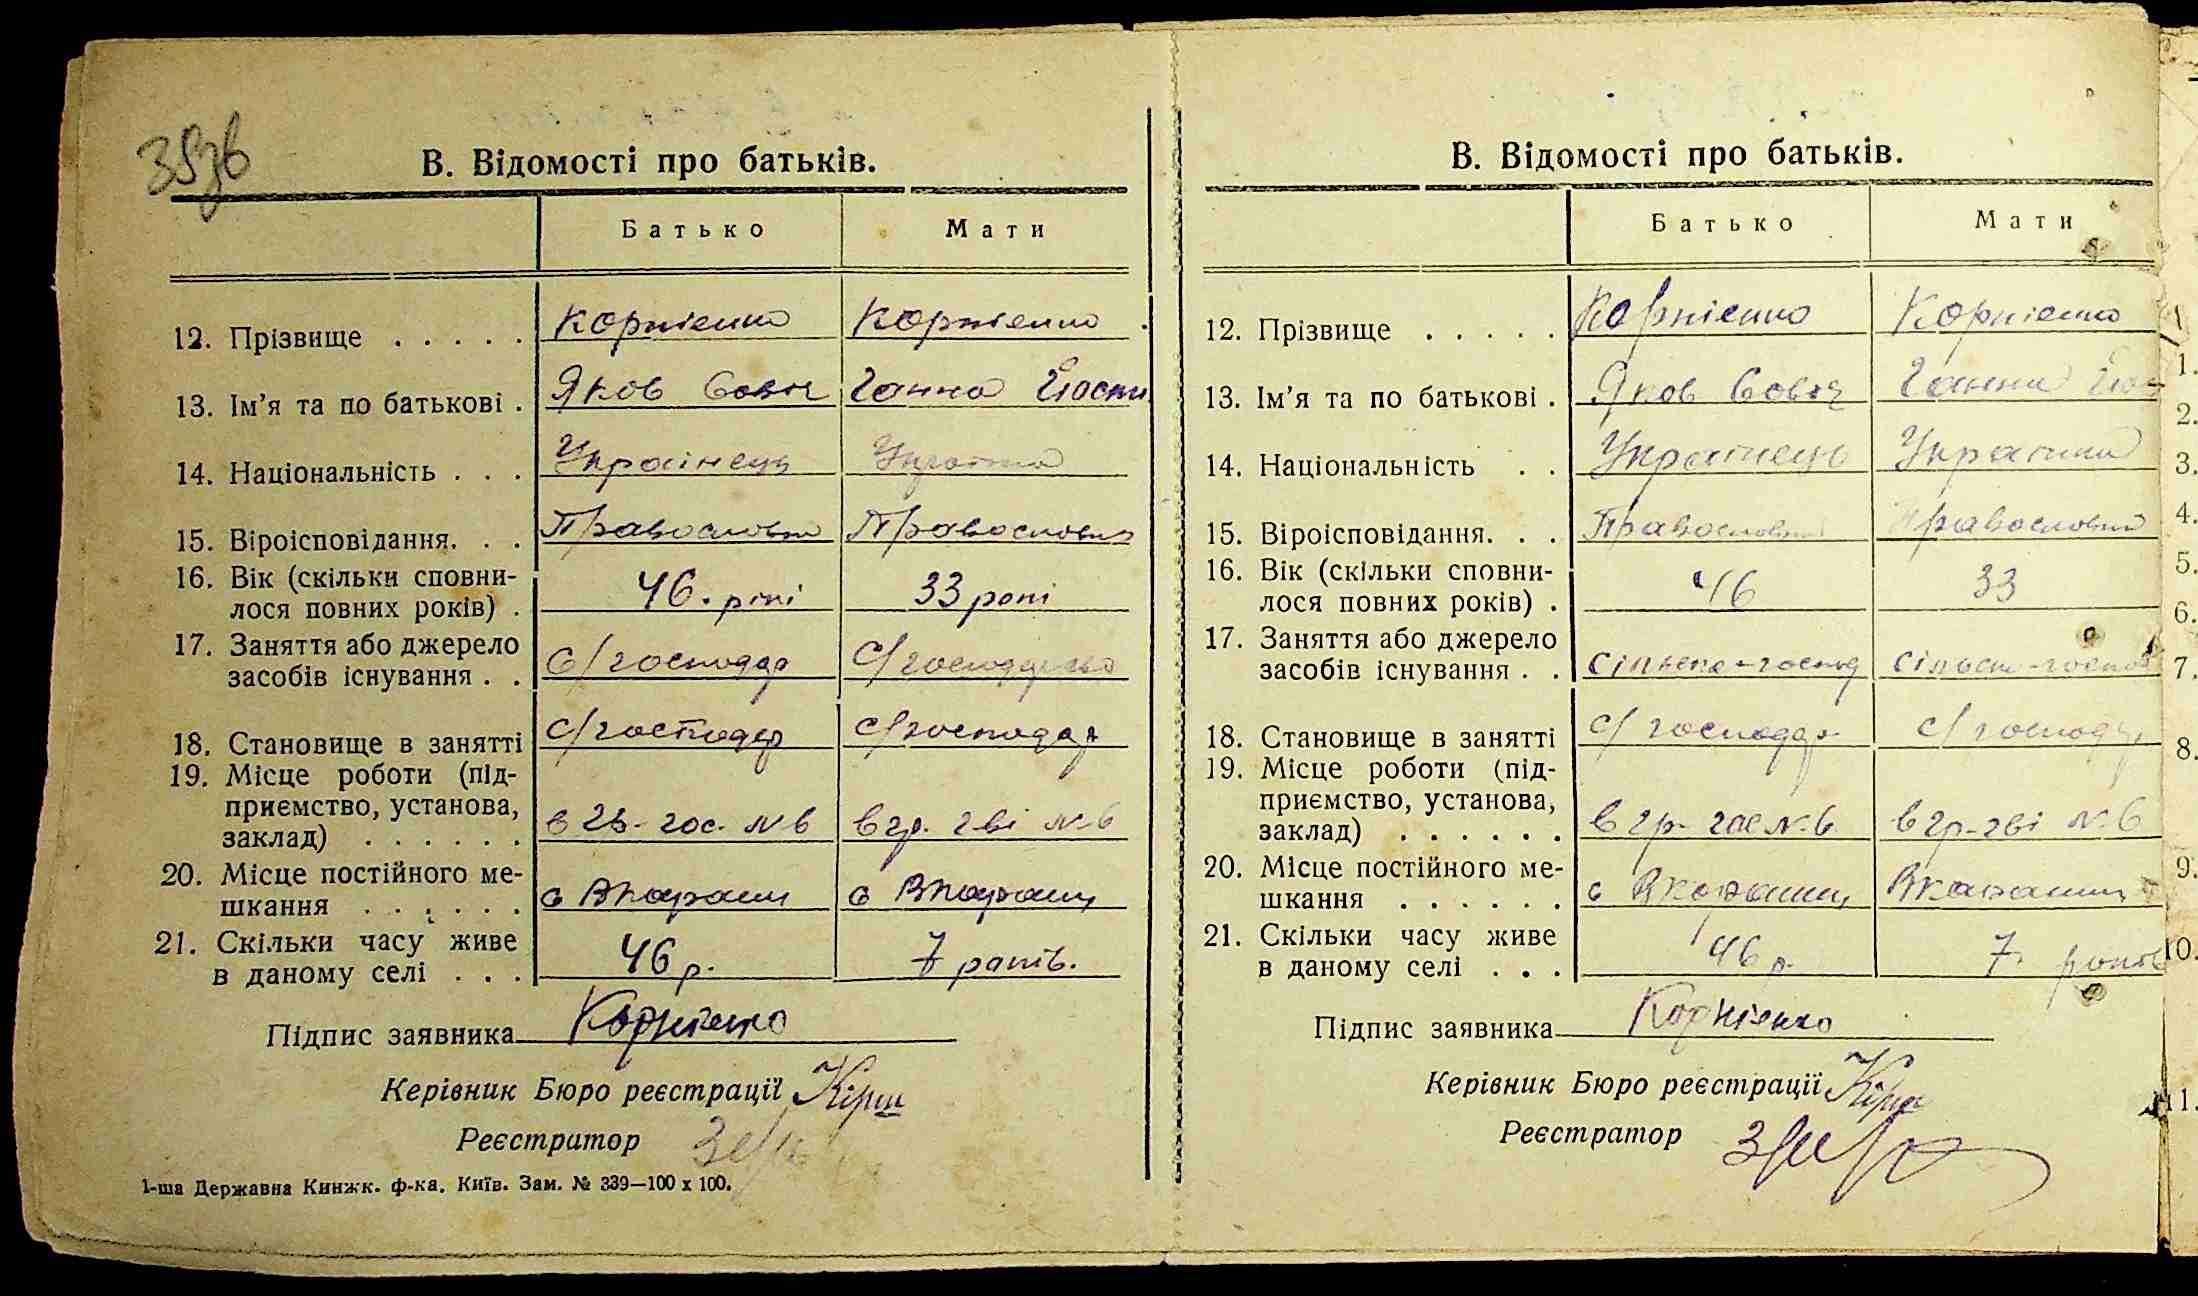 В. Відомості про батьків.
Батько Мати
12. Прізвище . . . . . Корнієнко Корнієнко
13. Ім'я та по батькові . Яков Ганна
14. Національність . . . Українець Українка
15. Віроісповідання. . . Православн Православн
16. Вік (скільки сповни-
лося повних років) . 46. рокі 33 рокі
17. Заняття або джерело
засобів існування . . С/господар С/господарство
18. Становище в занятті С/господар С/господар
19. Місце роботи (під-
приємство, установа,
заклад) . . . . . . в гр. гві №6
20. Місце постійного ме-
шкання . . . . . .
21. Скільки часу живе
в даному селі . . . 46 р. 7 років.
Підпис заявника Корнієнко
Керівник Бюро реєстрації
Реєстратор
1-ша Державна Книжк. ф-ка. Київ. Зам. № 339—100 х 100.
В. Відомості про батьків.
Батько Мати
12. Прізвище . . . . . Корнієнко Корнієнко
13. Ім'я та по батькові . Яков Ганна
14. Національність . . Українець Українка
15. Віроісповідання. . . Православн Православн
16. Вік (скільки сповни-
лося повних років) . 46 33
17. Заняття або джерело
засобів існування . . сільськ-господ сільськ-господ
18. Становище в занятті С/господар С/господар
19. Місце роботи (під-
приємство, установа,
заклад) . . . . . . в гр- гос №6 в гр-гві №6
20. Місце постійного ме-
шкання . . . . . .
21. Скільки часу живе
в даному селі . . . 46 р. 7 років
Підпис заявника Корнієнко
Керівник Бюро реєстрації
Реєстратор
1.
2.
3.
4.
5.
6.
7.
8.
9.
10.
11.